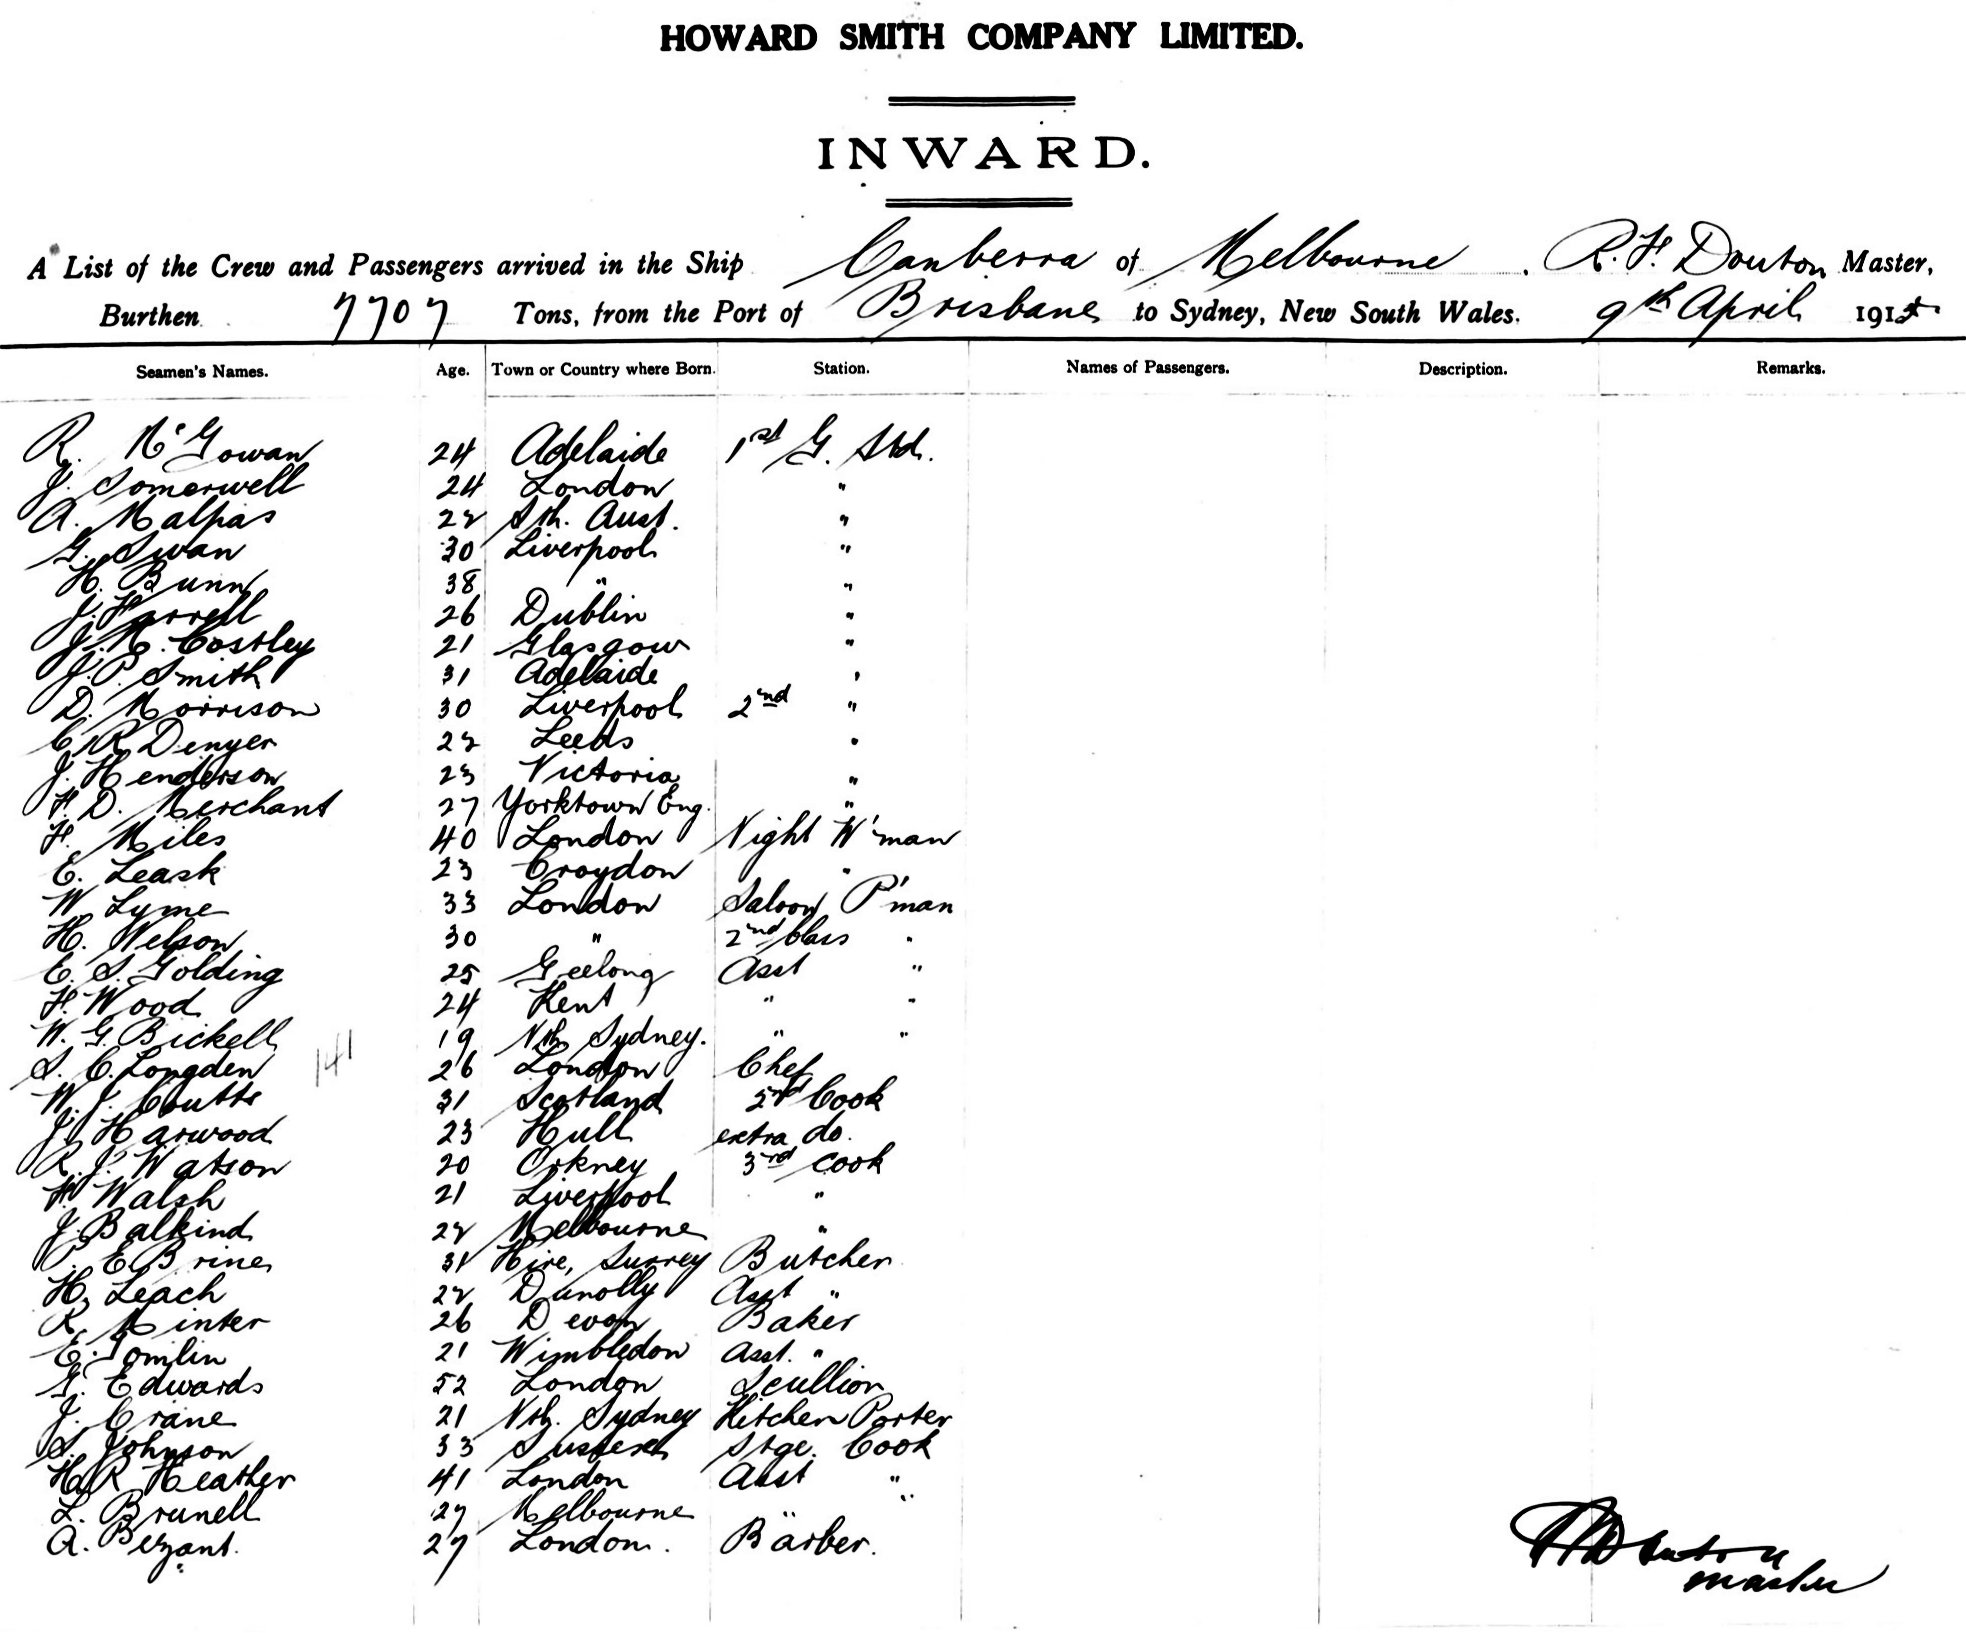 HOWARD SMITH COMPANY LIMITED.
INWARD.
A List of the Crew and Passengers arrived in the Ship Canberra of Melbourne, R. F. Douton Master,
Burthen 7707 Tons, from the Port of Brisbane to Sydney, New South Wales. 9th April 191
Seamen's Names. Age. Town or Country where Born. Station. Names of Passengers. Description. Remarks.
R. McGowan 24 Adelaide 1st G. Std.
J. Somerwell 24 London "
A. Malpas 22 Sth. Aust. "
G. Swan 30 Liverpool "
H. Bunn 38 " "
J. Farrell 26 Dublin "
J. M. Costley 21 Glasgow "
J. P. Smith 31 Adelaide "
D. Morrison 30 Liverpool 2nd "
C. R. Denyer 22 Leeds "
J. Henderson 23 Victoria "
F. D. Merchant 27 Yorktown Eng. "
F. Miles 40 London Night W'man
E. Leask 23 Croydon "
W Lyme 33 London Saloon P'man
H. Welson 30 " 2nd Class "
E. S. Golding 25 Geelong Asst "
F. Wood 24 Kent " "
W. G. Bickell 19 Nth Sydney. " "
S. C. Longden 141 26 London Chef
W. J. Coutts 31 Scotland 2nd Cook
J. Harwood 23 Hull extra do.
R. J. Watson 20 Orkney 3rd Cook
F. Walsh 21 Liverpool "
J. Balkind 22 Melbourne "
P. E. Brine 31 Hire, Surrey Butcher
H. Leach 22 Dunolly Asst "
R. Minter 26 Devon Baker
E. Tomlin 21 Wimbledon Asst. "
G. Edwards 52 London Scullion
J. Crane 21 Nth. Sydney Kitchen Porter
S. Johnson 33 Sussex Stge. Cook
H. R Heather 41 London Asst "
L. Brunell 27 Melbourne " "
A. Bezant. 27 London. Barber.
R F Douton
Master